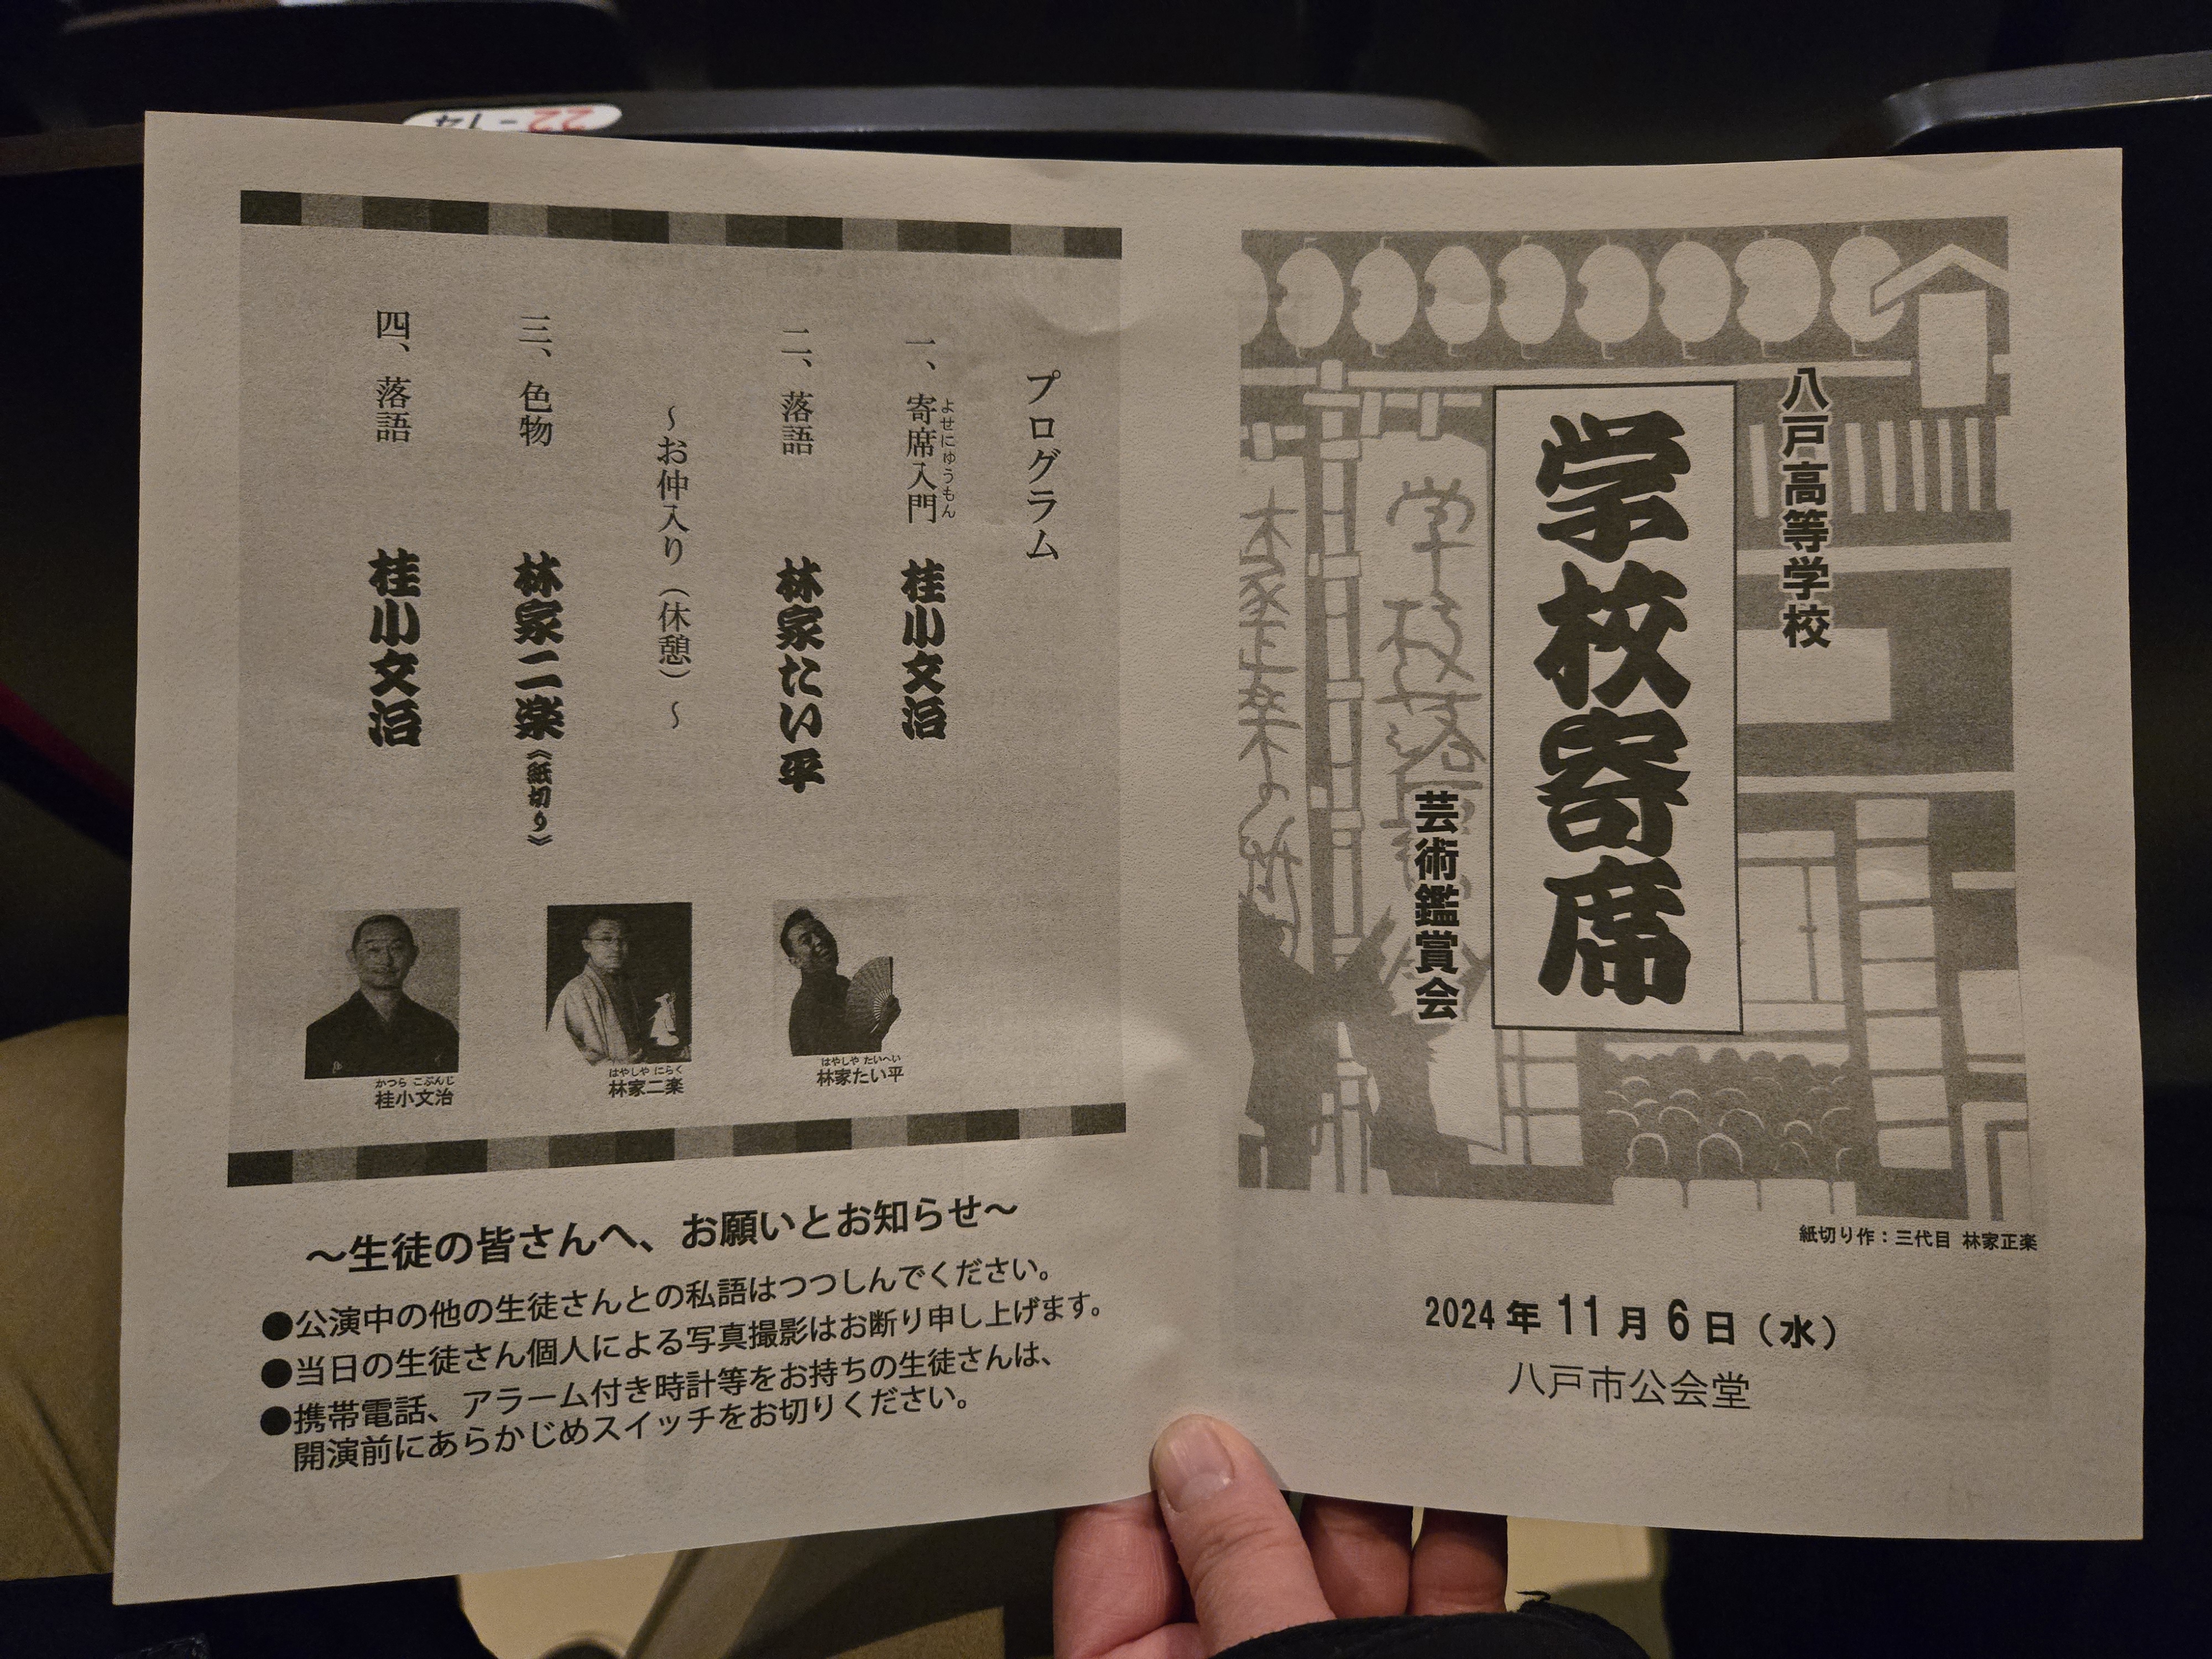 22-14
八戸高等学校
学校寄席
芸術鑑賞会
紙切り作：三代目 林家正楽
2024年11月6日（水）
八戸市公会堂
プログラム
一、寄席入門 桂小文治
よせにゅうもん
二、落語 林家たい平
～お仲入り（休憩）～
三、色物 林家二楽《紙切り》
四、落語 桂小文治
かつら こぶんじ
桂小文治
はやしや にらく
林家二楽
はやしや たいへい
林家たい平
～生徒の皆さんへ、お願いとお知らせ～
●公演中の他の生徒さんとの私語はつつしんでください。
●当日の生徒さん個人による写真撮影はお断り申し上げます。
●携帯電話、アラーム付き時計等をお持ちの生徒さんは、
開演前にあらかじめスイッチをお切りください。